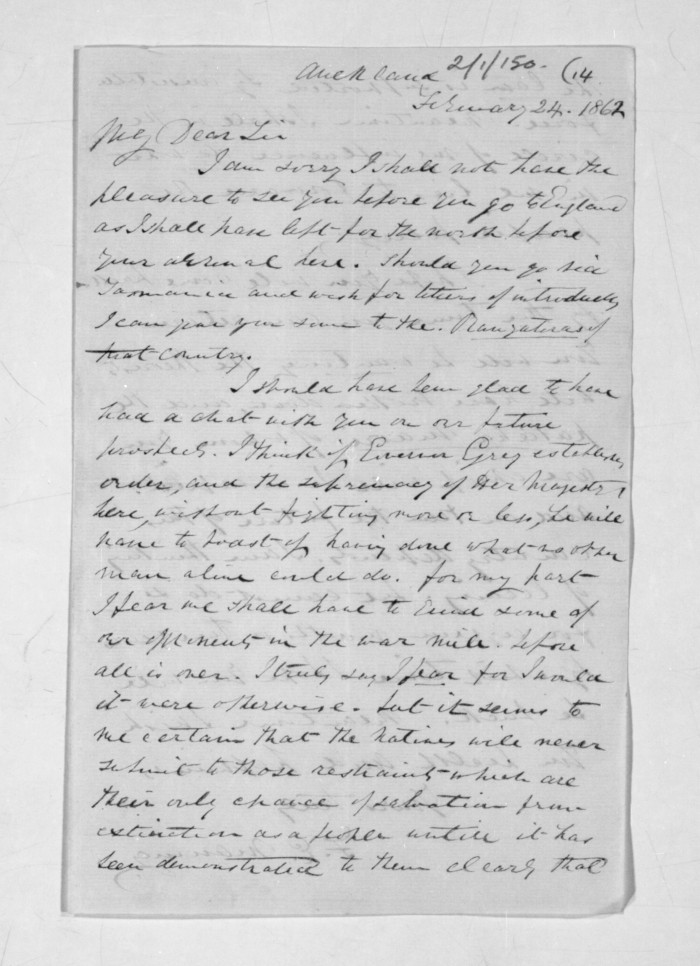 Auckland 2/1/150. (14
February 24. 1862
My Dear Sir
I am sorry I shall not have the
pleasure to see you before you go to England
as I shall have left for the north before
your arrival here. Should you go via
Tasmania and wish for letters of introduction
I can give you some to the Rangatiras of
that country.
I should have been glad to have
had a chat with you on our future
prospects. I think if Governor Grey establishes
order, and the supremacy of Her Majesty
here, without fighting more or less, he will
have to boast of having done what no other
man alive could do. for my part
I fear we shall have to Grind some of
our opponents in the war mill. before
all is over. I truly say I fear for I would
it were otherwise. but it seems to
me certain that the Natives will never
submit to those restraints which are
their only chance of salvation from
extinction as a people untill it has
been demonstrated to them clearly that